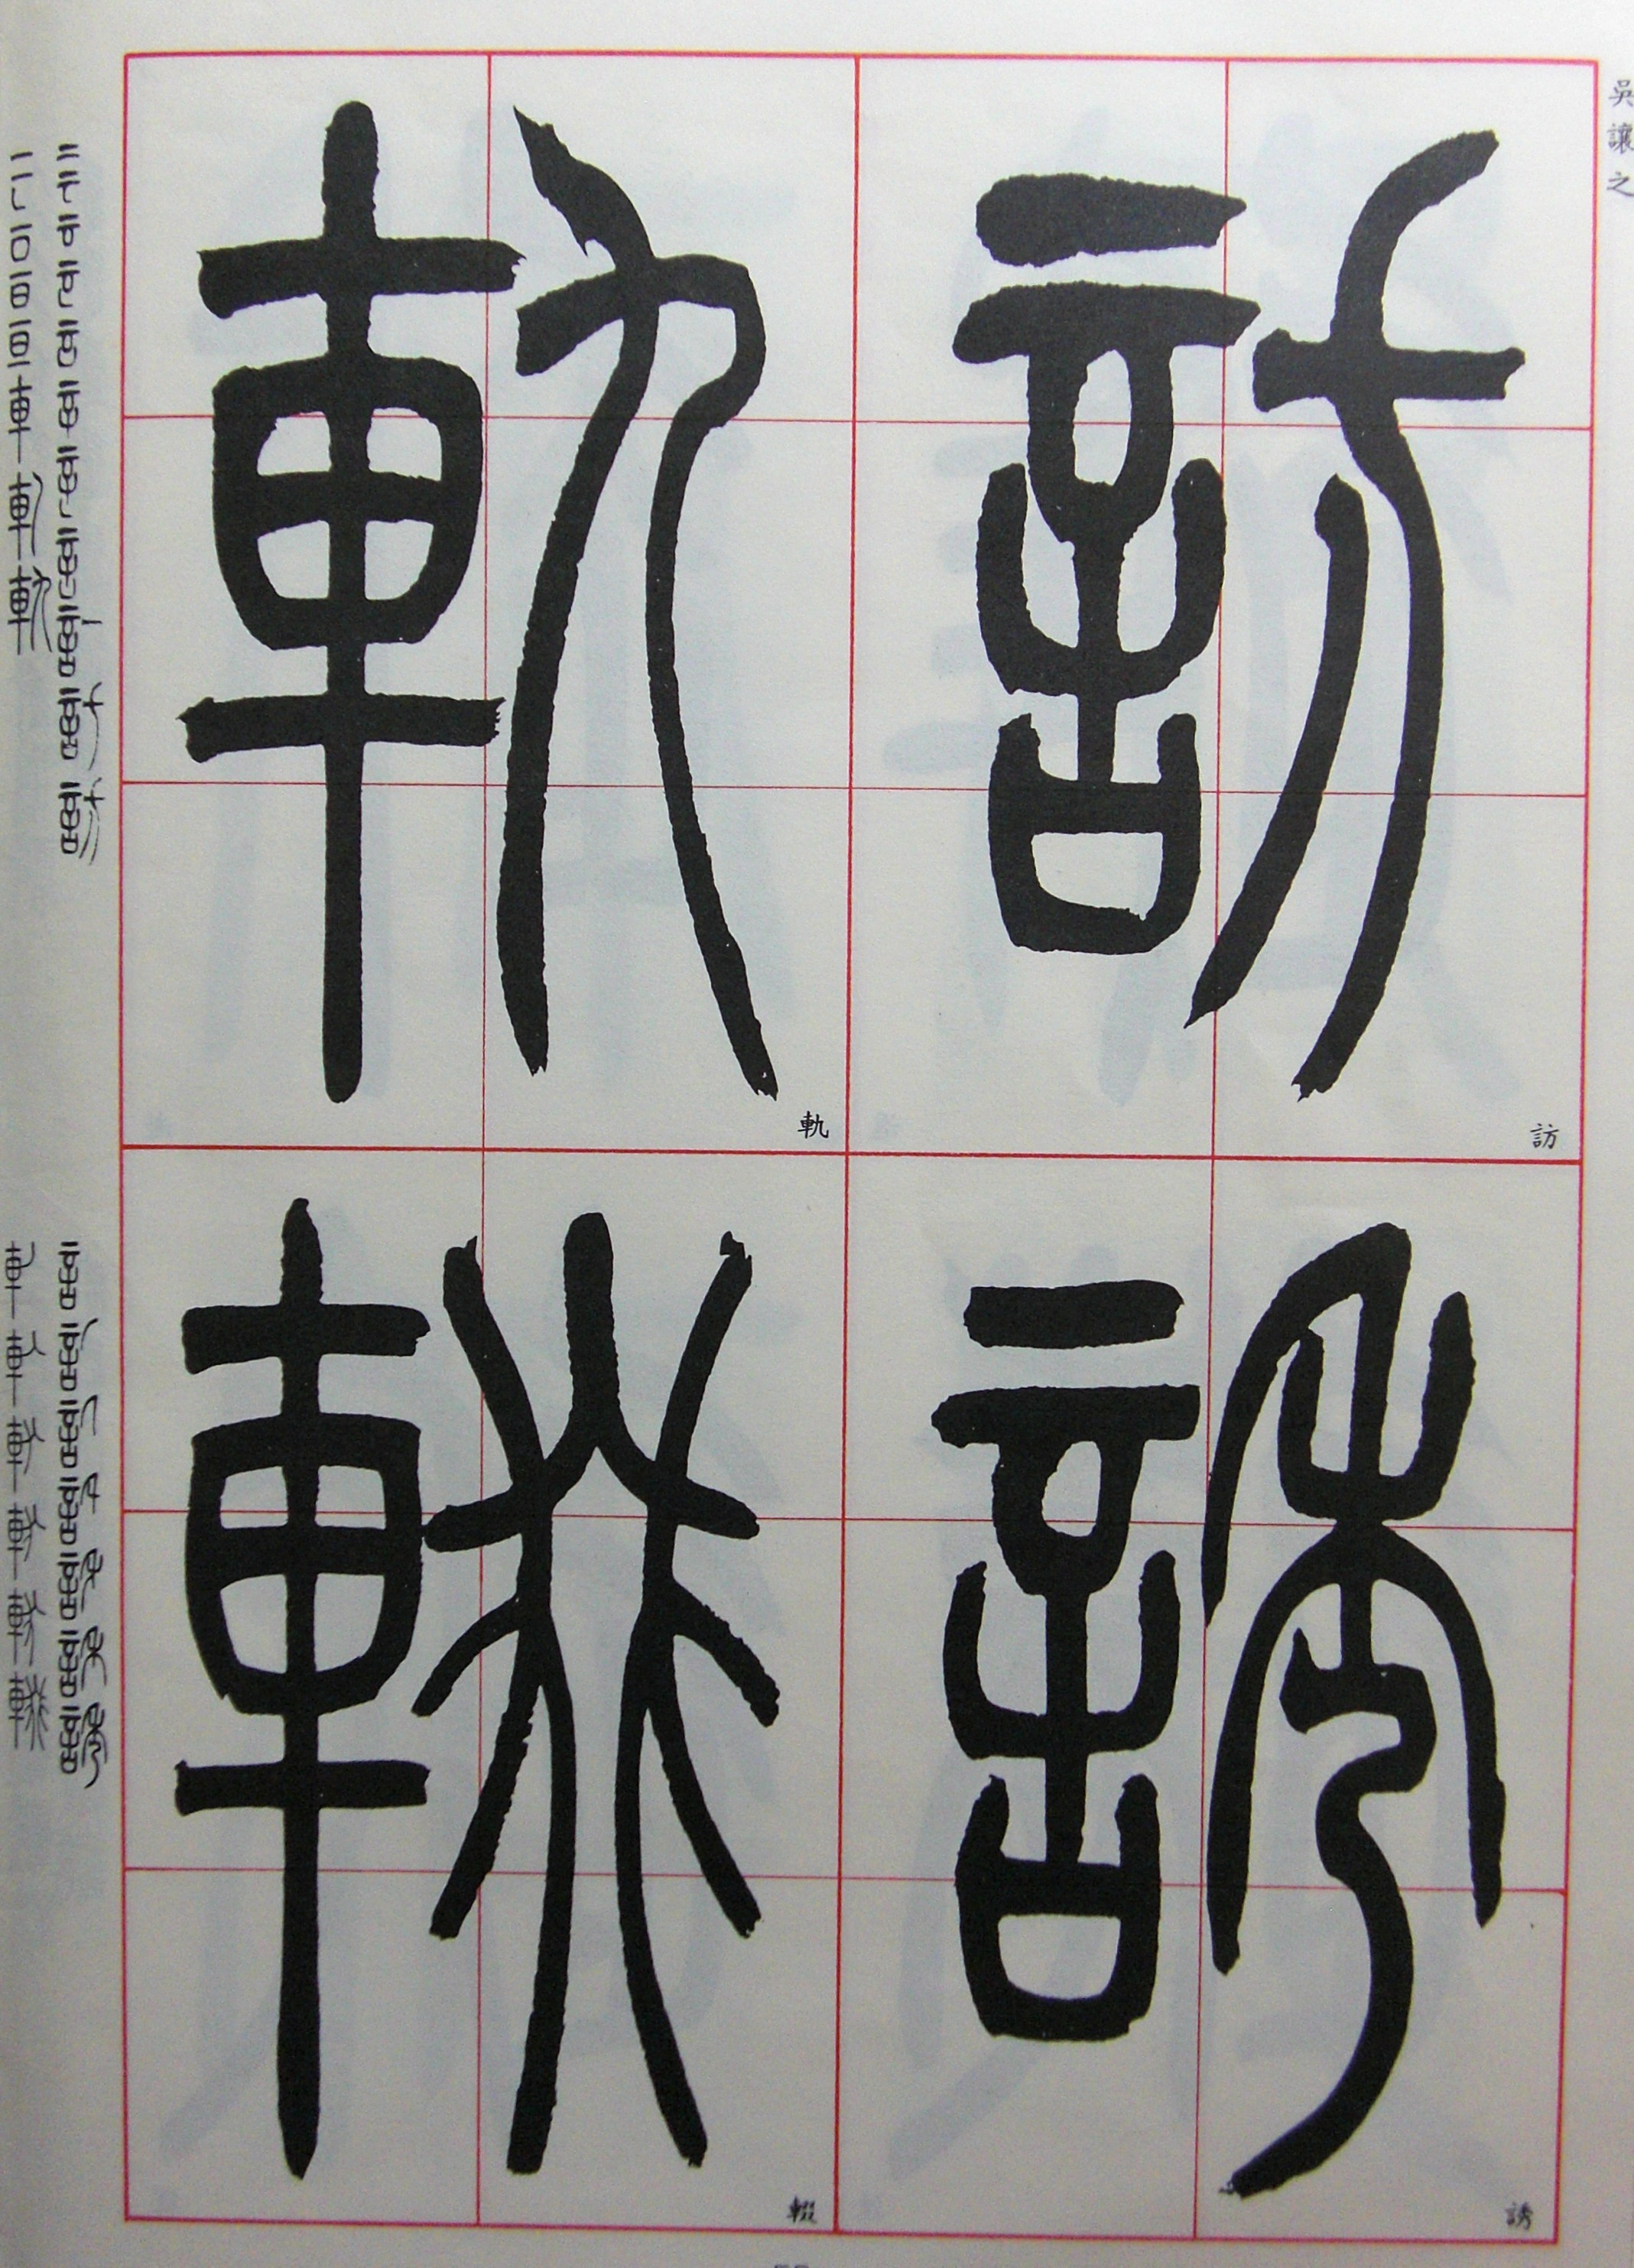 吳讓之
訪
誘
軌
輟